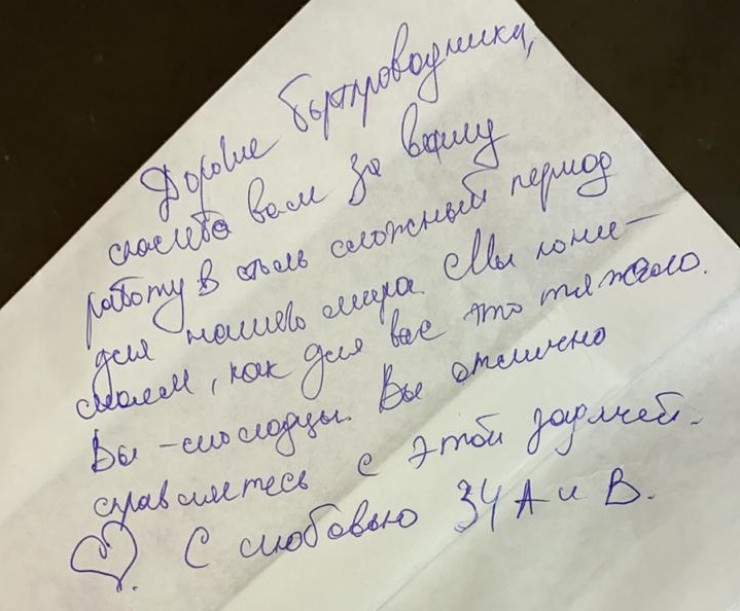 Дорогие бортпроводники,
спасибо вам за вашу
работу в столь сложный период
для нашего мира. Мы пони-
маем, как для вас это тяжело.
Вы - молодцы. Вы отлично
справляетесь с этой задачей.
С любовью 34 А и В.